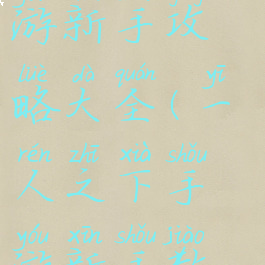 游新手攻
lüè dà quán yī
略大全(一
rén zhī xià shǒu
人之下手
yóu xīn shǒu liào